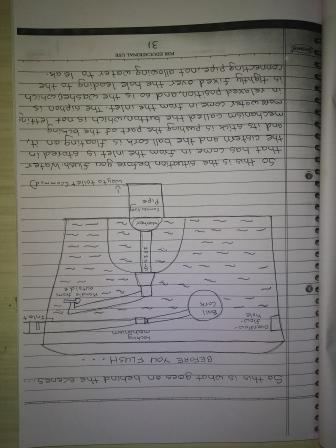 So this is what goes on behind the scenes...
BEFORE YOU FLUSH....
Locking
mechanism
Overflow-
flow-
hole
Ball
Cork
Handle from
outside
Inlet
Siphon
Washer
Connecting
Pipe
Way to toilet (Commode)
So this is the situation before you flush. Water
that has come in from the inlet is stored in
the cistern and the ball cork is floating on it,
and its stick is pushing the part of the locking
mechanism called the button which is not letting
more water come in from the inlet. The siphon is
in relaxed position, and so is the washer, which
is tightly fixed over the hole leading to the
connecting pipe, not allowing water to leak.
FOR EDUCATIONAL USE
31